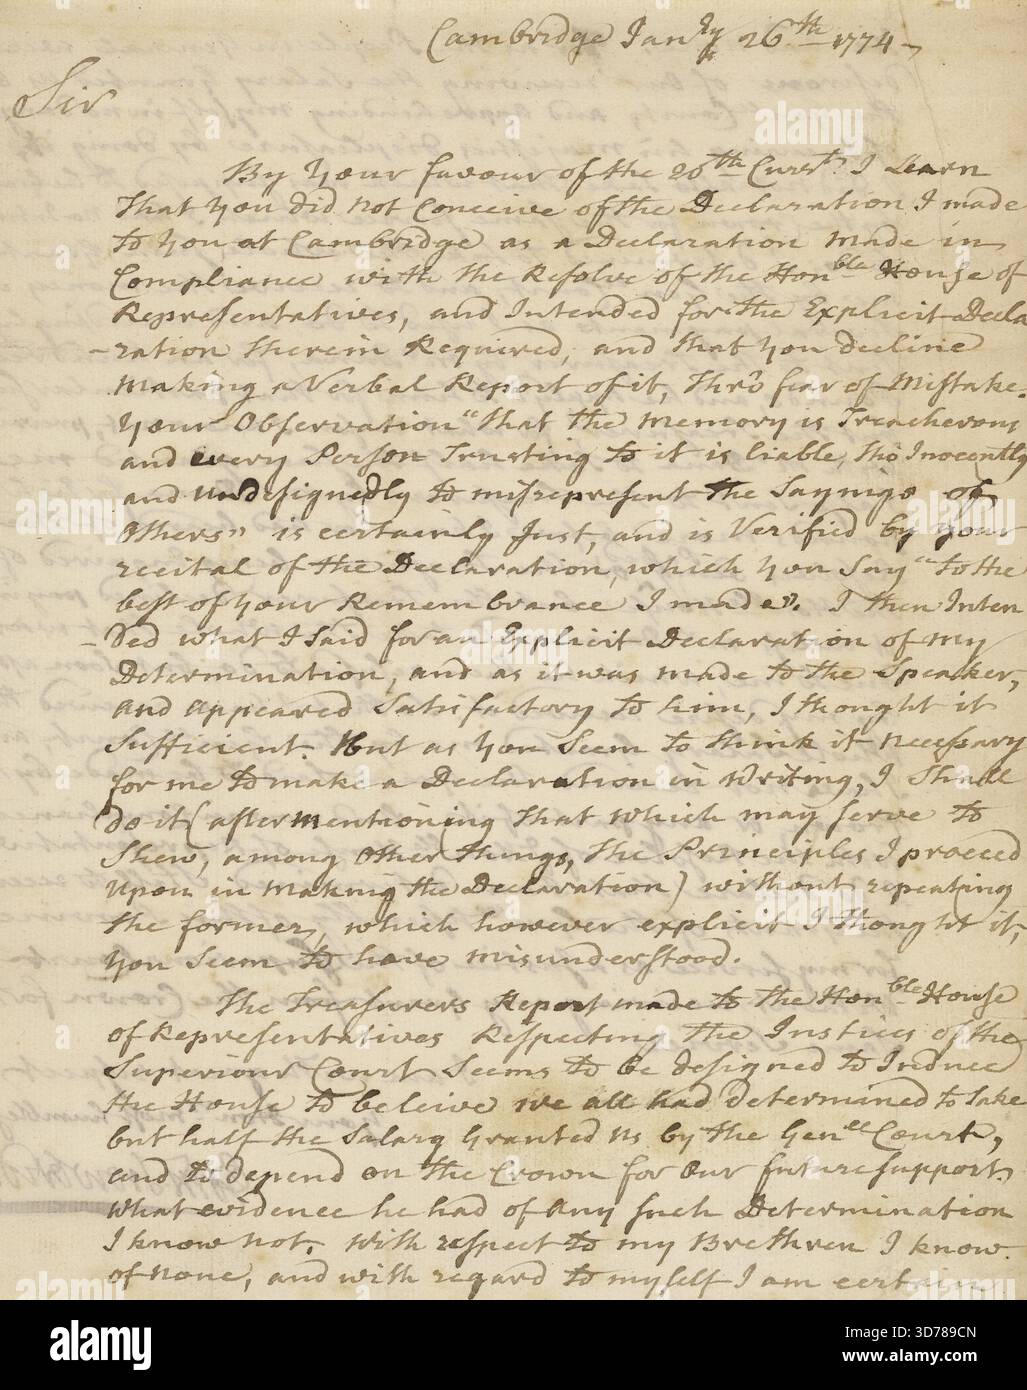 Cambridge Janry 26th 1774
Sir
By Your favour of the 20th Curst. I Learn
that you did not Conceive of the Declaration I made
to you at Cambridge as a Declaration made in
Compliance with the Resolve of the Honble House of
Representatives, and Intended for the Explicit Decla
-ration therein Required, and that you decline
making a Verbal Report of it, Thro' fear of Mistake.
Your Observation "that the memory is Treacherous
and every Person Trusting to it is liable, tho Inocently
and undesignedly to misrepresent the Sayings of
Others" is certainly Just, and is Verified by your
recital of the Declaration, which you Say "to the
best of your Remembrance I made". I then Inten
-ded what I said for an Explicit Declaration of my
Determination, and as it was made to the Speaker,
and appeared Satisfactory to him, I thought it
sufficient. But as you Seem to think it necessary
for me to make a Declaration in writing, I Shall
do it (after mentioning that which may serve to
Shew, among Other things, the Principles I proceed
upon in making the Declaration) without repeating
the former, which however explicit I thought it,
you Seem to have misunderstood.
The Treasurers Report made to the Honble House
of Representatives Respecting the Justices of the
Superiour Court Seems to be designed to Induce
the House to beleive we all had determined to take
but half the Salary granted us by the Genell Court,
and to depend on the Crown for our future support.
what evidence he had of any such Determination
I know not. with respect to my Brethren I know
of none, and with regard to myself I am certain
alamy
Image ID: 3D789CN
www.alamy.com